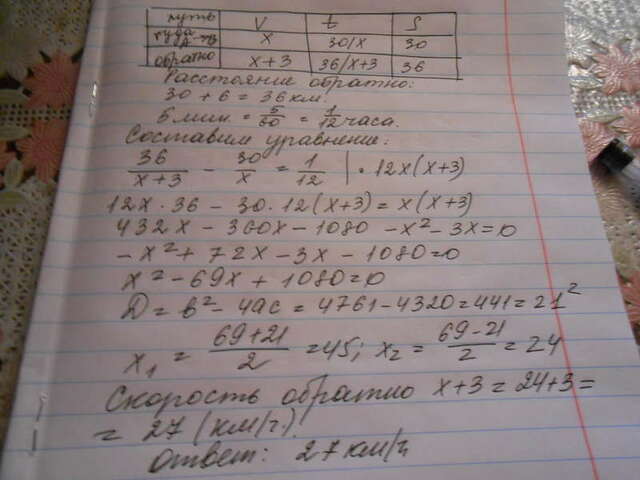 путь V t S
туда x 30/x 30
обратно x+3 36/x+3 36
Расстояние обратно:
30 + 6 = 36 км.
5 мин. = 5/60 = 1/12 часа.
Составим уравнение:
36/x+3 - 30/x = 1/12 | · 12x(x+3)
12x · 36 - 30 · 12(x+3) = x(x+3)
432x - 360x - 1080 - x² - 3x = 0
- x² + 72x - 3x - 1080 = 0
x² - 69x + 1080 = 0
D = b² - 4ac = 4761 - 4320 = 441 = 21²
x₁ = 69+21/2 = 45; x₂ = 69-21/2 = 24
Скорость обратно x+3 = 24+3 =
= 27 (км/ч).
Ответ: 27 км/ч